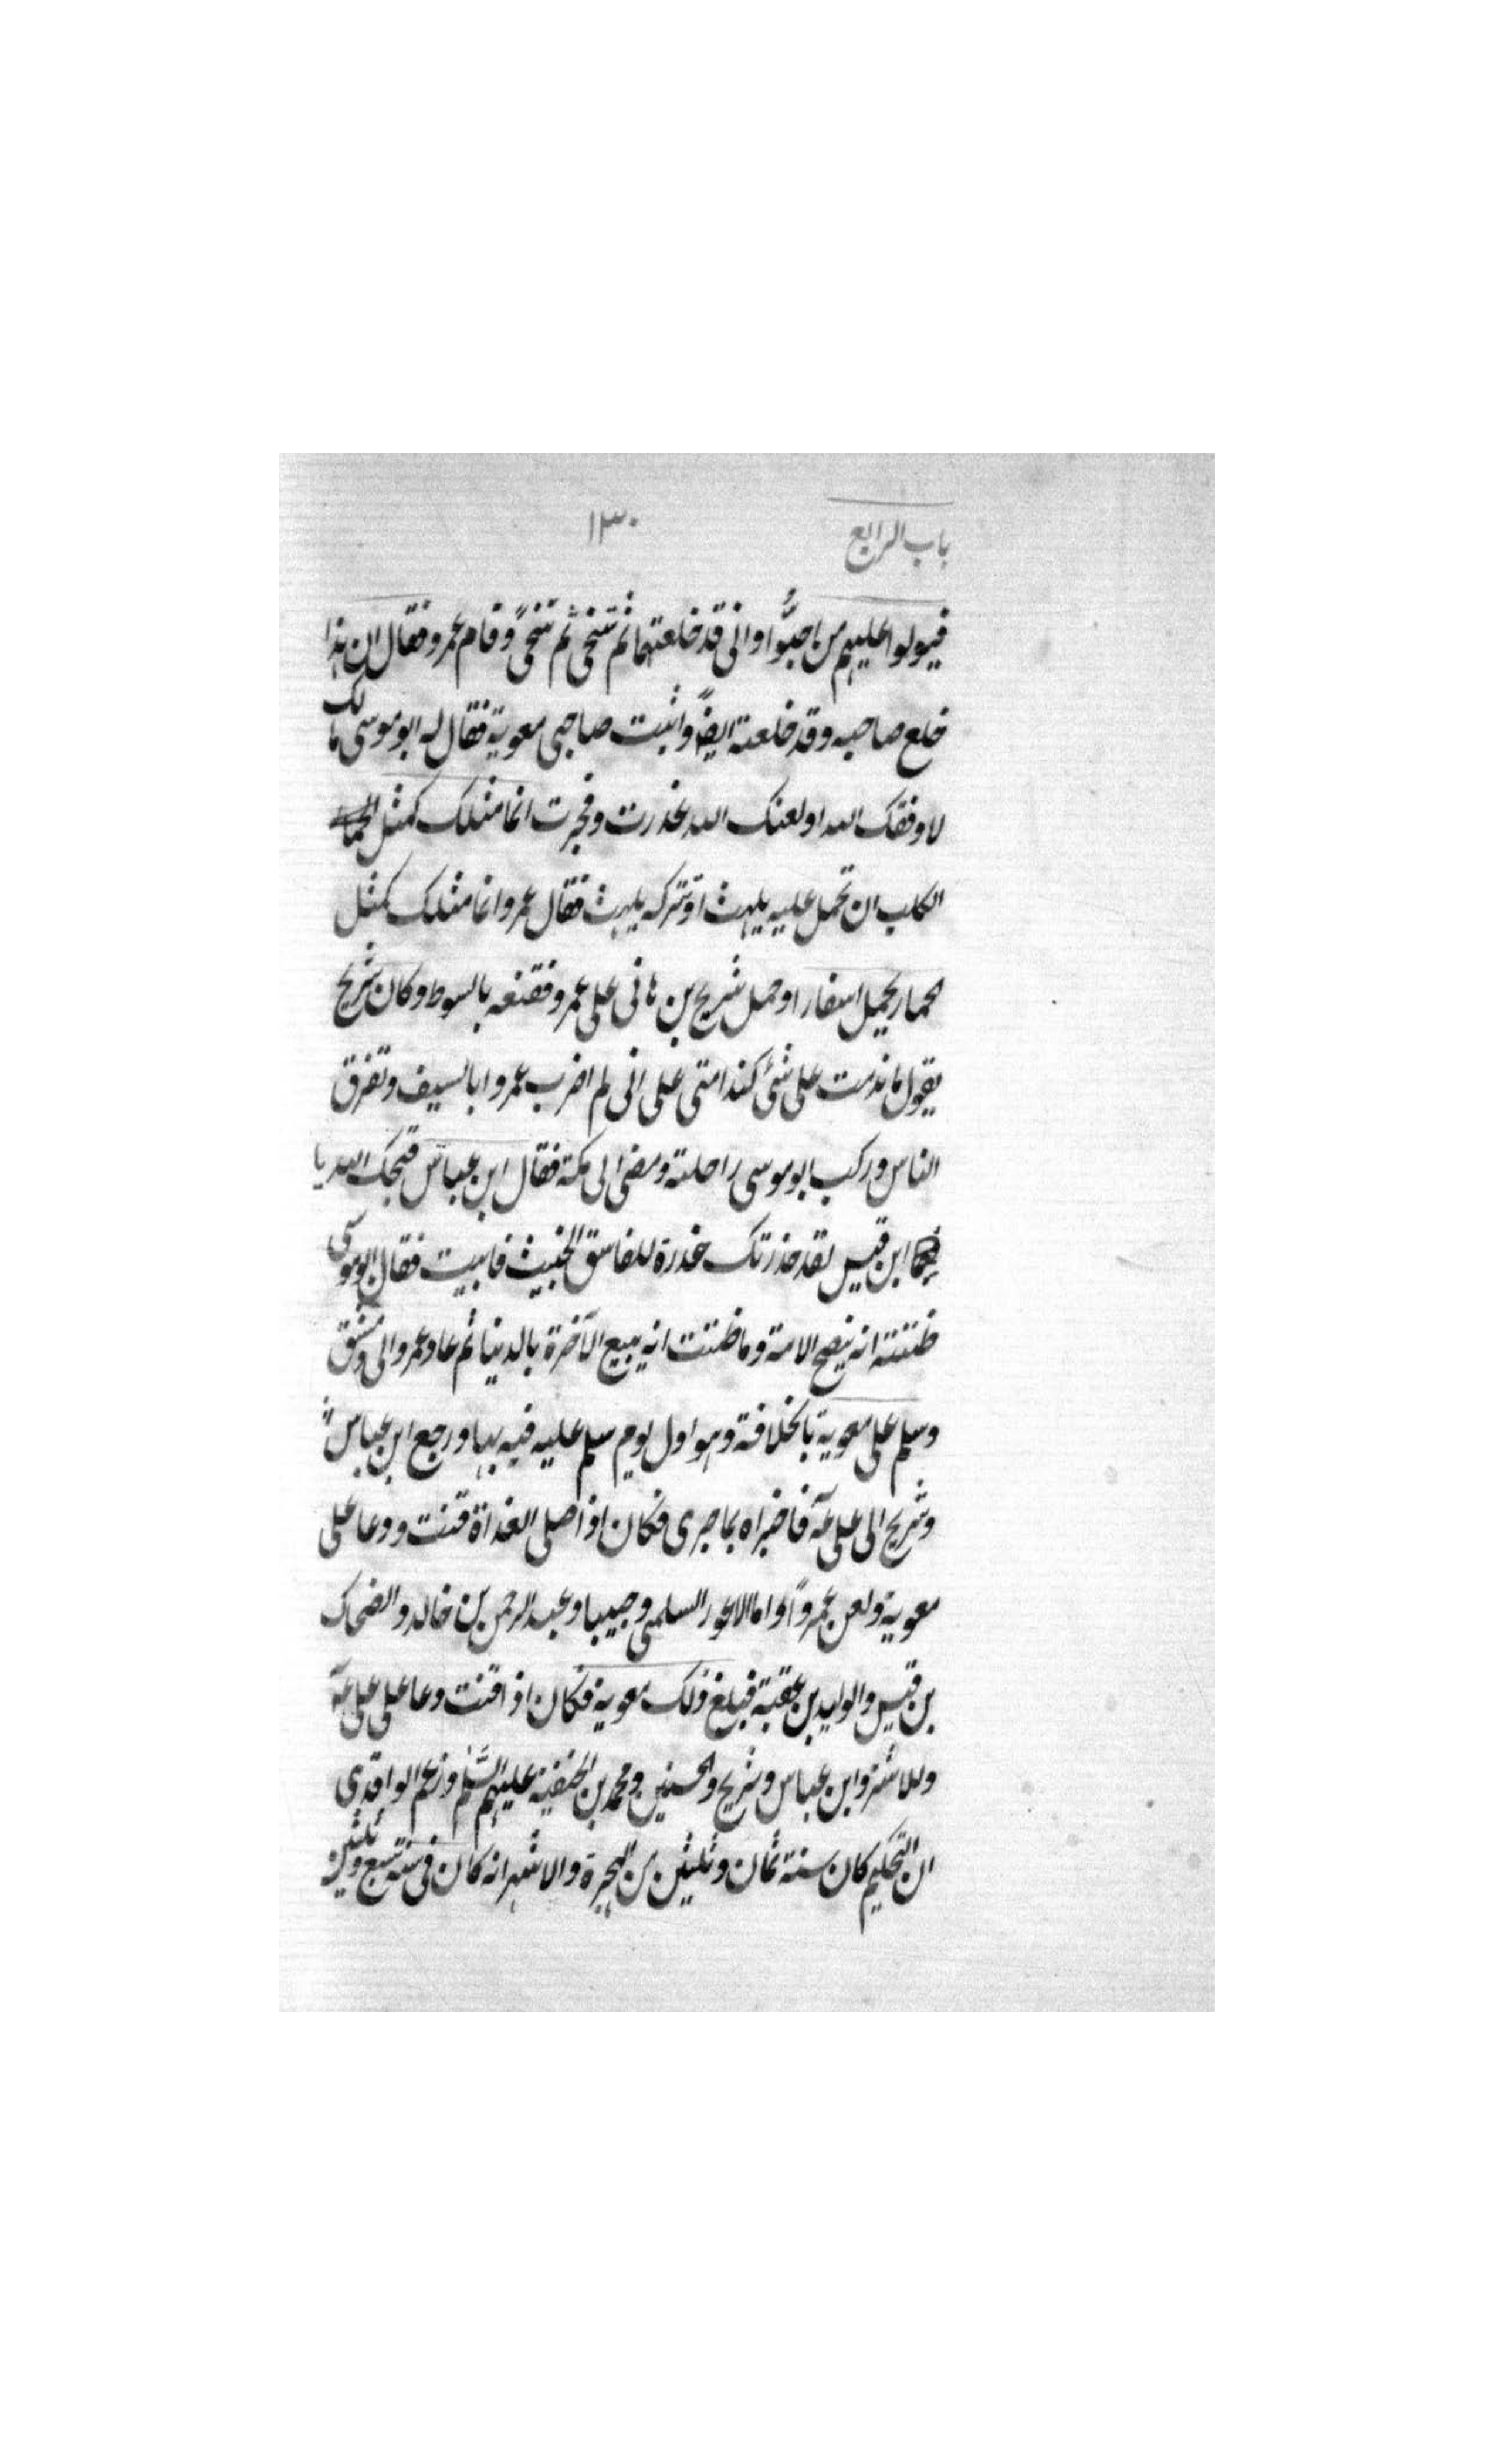 باب الرابع ١٣٠
فيولوا عليهم من احبوا وانى قد خلعتهما ثم تنحى ثم تنحى وقام عمرو فقال ان هذا
خلع صاحبه وقد خلعته ايضا واثبت صاحبى معوية فقال له ابو موسى مالك
لا وفقك الله اولعنك الله غدرت وفجرت انما مثلك كمثل
الكلب ان تحمل عليه يلهث اوتتركه يلهث فقال عمرو انما مثلك كمثل
لحمار يحمل اسفارا وحمل شريح بن هانى على عمرو فقنعه بالسوط وكان شريح
يقول ما ندمت على شئ كندامتى على انى لم اضرب عمروا بالسيف وتفرق
الناس وركب ابو موسى راحلته ومضى الى مكة فقال ابن عباس قبحك الله يا
ابن قيس لقد حذرتك غدرة للفاسق الخبيث فابيت فقال ابو موسى
ظننته انه ينصح الامة وما ظننت انه يبيع الآخرة بالدنيا ثم عاد عمرو الى دمشق
وسلم على معوية بالخلافة وهو اول يوم سلم عليه فيه بها ورجع ابن عباس
وشريح الى على فاخبراه بما جرى فكان اذا صلى الغداة قنت ودعا على
معوية ولعن عمروا وابا الاعور السلمى وحبيبا وعبد الرحمن بن خالد والضحاك
بن قيس والوليد بن عقبة فبلغ ذلك معوية فكان اذا قنت دعا على على
وللاشتر وابن عباس وشريح والحسنين ومحمد بن الحنفية عليهم السلم وزعم الواقدى
ان التحكيم كان سنة ثمان وثلثين من الهجرة والاشهر انه كان فى سنة تسع وثلثين